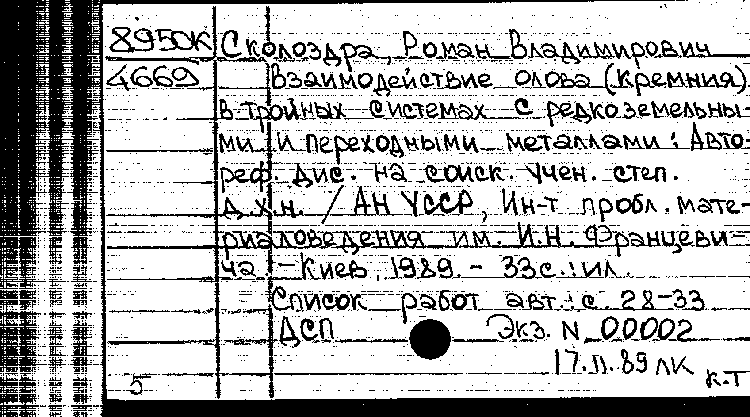 8950К Сколоздра, Роман Владимирович
4669 Взаимодействие олова (кремния)
в тройных системах с редкоземельны-
ми и переходными металлами: Авто-
реф. дис. на соиск. учен. степ.
д.х.н. / АН УССР, Ин-т пробл. мате-
риаловедения им. И.Н. Францеви-
ча. - Киев, 1989. - 33 с.: ил.
Список работ авт.: с. 28-33
ДСП Экз. N 00002
17.11.89 ЛК
5 К-Т